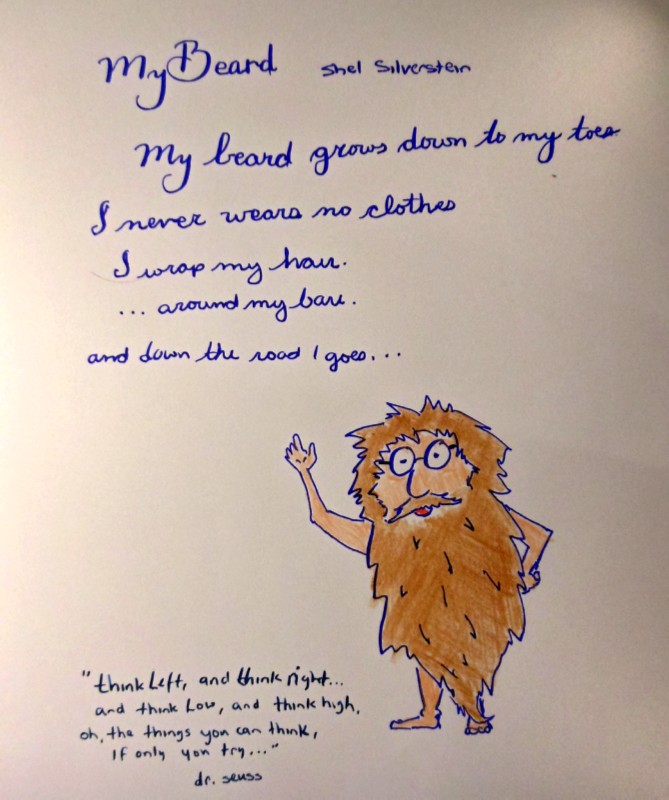 My Beard Shel Silverstein
My beard grows down to my toes
I never wears no clothes
I wrap my hair.
... around my bare.
and down the road I goes...
"think Left, and think right...
and think Low, and think high,
oh, the things you can think,
If only you try..."
dr. seuss